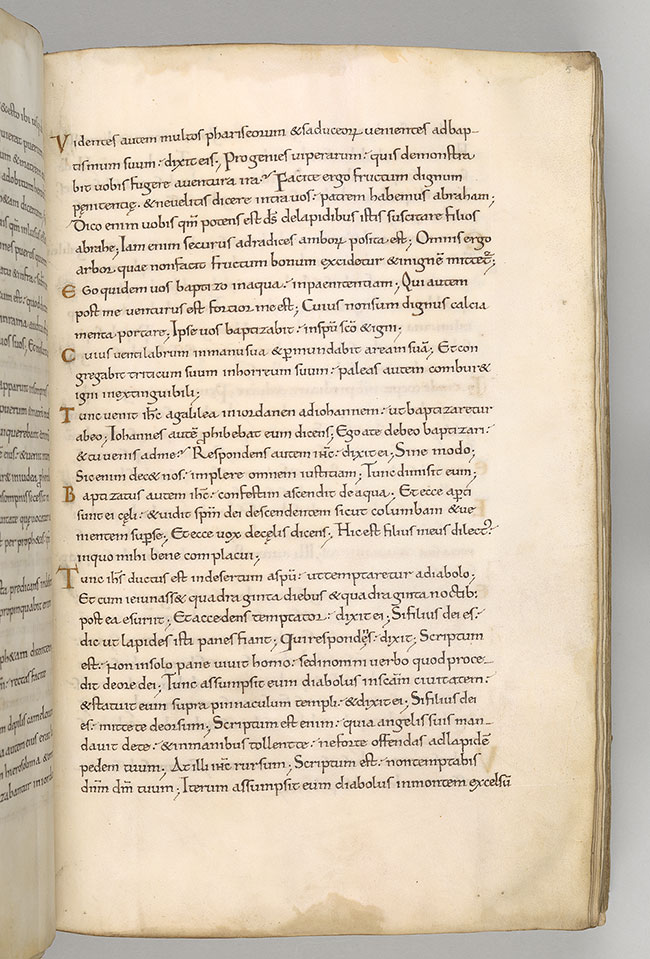 &esto ibi usq;
Videntes autem multos phariseorum &saduceoꝝ uenientes adbap-
tismum suum· dixit eis; Progenies uiperarum· quis demonstra
bit uobis fugere auentura ira; Facite ergo fructum dignum
pęnitentię· &neuelitis dicere intra uos· patrem habemus abraham;
Dico enim uobis qm̄ potens est ds̄ delapidibus istis suscitare filios
abrahe; Iam enim securus adradices arboꝝ posita est; Omnis ergo
arbor quae nonfacit fructum bonum excidetur &inignē mittet̄;
Ego quidem uos baptizo inaqua· inpaenitentiam; Qui autem
post me uenturus est fortior me est; Cuius nonsum dignus calcia
menta portare; Ipse uos baptizabit· inspū scō &igni;
Cuius uentilabrum inmanu sua &ꝑmundabit aream suā; Et con
gregabit triticum suum inhorreum suum· paleas autem combur&
igni inextinguibili;
Tunc uenit ihc̄ agalilea iniordanen adiohannem· ut baptizaretur
abeo; Iohannes autē ꝓhibebat eum dicens; Ego ate debeo baptizari·
&tu uenis adme· Respondens autem ihc̄· dixit ei; Sine modo;
Sic enim dec& nos· implere omnem iustitiam; Tunc dimisit eum;
Baptizatus autem ihc̄· confestim ascendit de aqua; Et ecce apti
sunt ei cęli· &uidit spm̄ dei descendentem sicut columbam &ue
nientem sup̄ se; Et ecce uox decęlis dicens; Hic est filius meus dilect᾽
inquo mihi bene complacui;
Tunc ihs̄ ductus est indesertum aspū· ut temptaretur adiabolo;
Et cum ieiunass& quadraginta diebus &quadraginta noctib·
post ea esuriit; Et accedens temptator· dixit ei; Si filius dei es·
dic ut lapides isti panes fiant; Qui respondęs· dixit; Scriptum
est· Non insolo pane uiuit homo· sedinomni uerbo quod proce-
dit deore dei; Tunc assumpsit eum diabolus inscām ciuitatem·
&statuit eum supra pinnaculum templi· &dixit ei; Si filius dei
es· mitte te deorsum; Scriptum est enim· quia angelis suis man-
dauit dete· &inmanibus tollent te· neforte offendas adlapidē
pedem tuum; Ait illi ihc̄ rursum; Scriptum est· nontemptabis
dnm̄ dm̄ tuum; Iterum assumpsit eum diabolus inmontem excelsū